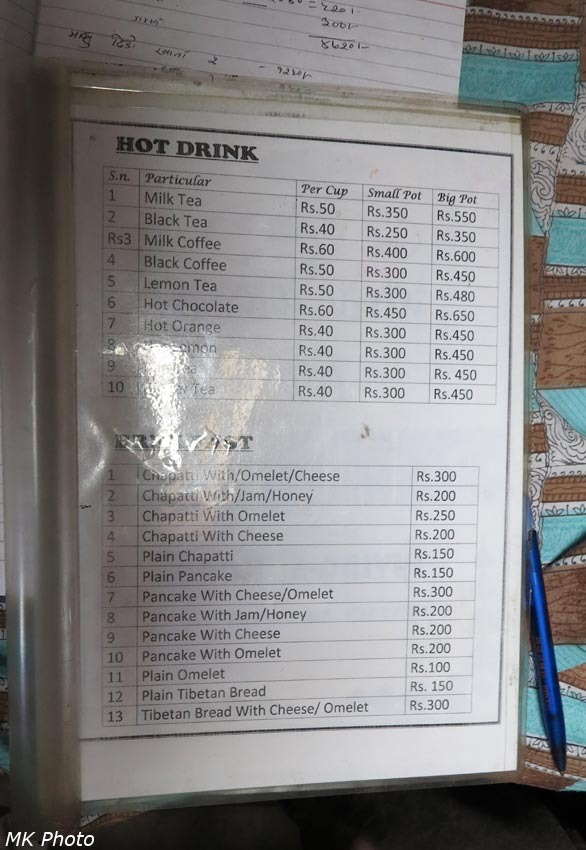 HOT DRINK
S.n. Particular Per Cup Small Pot Big Pot
1 Milk Tea Rs.50 Rs.350 Rs.550
2 Black Tea Rs.40 Rs.250 Rs.350
Rs3 Milk Coffee Rs.60 Rs.400 Rs.600
4 Black Coffee Rs.50 Rs.300 Rs.450
5 Lemon Tea Rs.50 Rs.300 Rs.480
6 Hot Chocolate Rs.60 Rs.450 Rs.650
7 Hot Orange Rs.40 Rs.300 Rs.450
8 Lemon Rs.40 Rs.300 Rs.450
9 Rs.40 Rs.300 Rs. 450
10 Tea Rs.40 Rs.300 Rs.450
BREAKFAST
1 Chapatti With/Omelet/Cheese Rs.300
2 Chapatti With/Jam/Honey Rs.200
3 Chapatti With Omelet Rs.250
4 Chapatti With Cheese Rs.200
5 Plain Chapatti Rs.150
6 Plain Pancake Rs.150
7 Pancake With Cheese/Omelet Rs.300
8 Pancake With Jam/Honey Rs.200
9 Pancake With Cheese Rs.200
10 Pancake With Omelet Rs.200
11 Plain Omelet Rs.100
12 Plain Tibetan Bread Rs. 150
13 Tibetan Bread With Cheese/ Omelet Rs.300
MK Photo